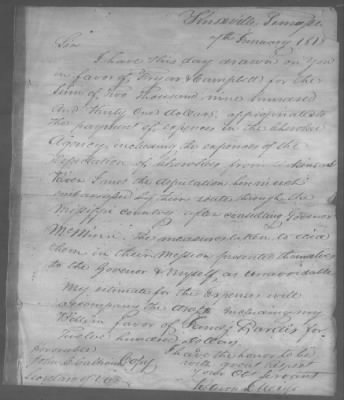 Knoxville, Tennessee
7th January 1818
Sir
I have this day drawn on you
in favor of Bryan & Campbell for the
Sum of Two thousand nine hundred
and thirty One dollars, appropriated to
the payment of expences in the Cherokee
Agency, including the expences of the
deputation of Cherokees from Arkansas
River. I and the deputation
embarrassed by their route through the
Mississippi country after consulting Governor
McMinn. The measures taken to
them in their Mission presented themselves
to the Governor & Myself, as unavoidable
My estimate for the expences will
accompany the including my
Bill in favor of James for
Twelve hundred dollars.
Honorable I have the honor to be
John C Calhoun Copy with great respect
Secretary of War Your Obt Servant
Return J. Meigs